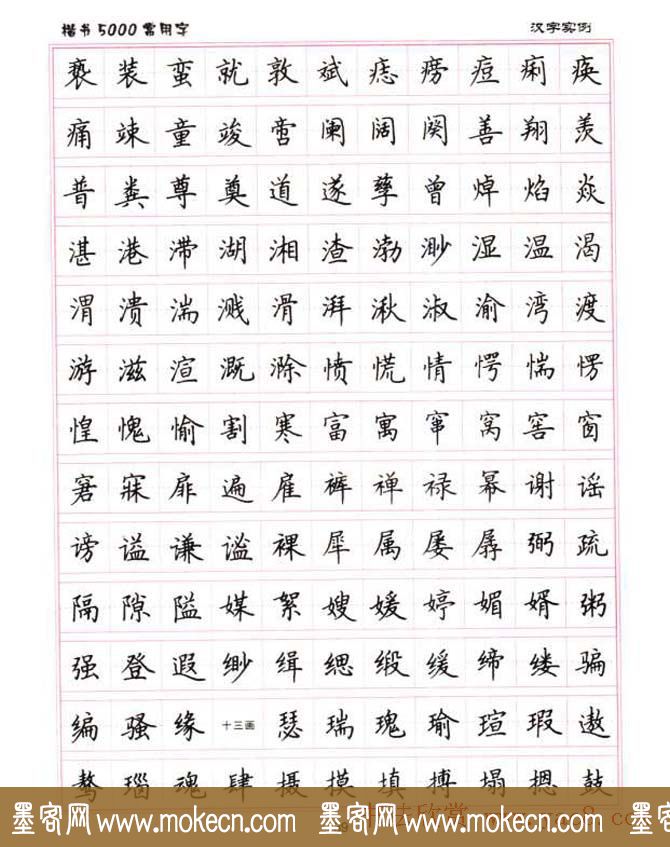 楷书5000常用字 汉字实例
亵 装 蛮 就 敦 斌 痣 痨 痘 痢 痪
痛 竦 童 竣 啻 阑 阔 阕 善 翔 羡
普 粪 尊 奠 道 遂 孳 曾 焯 焰 焱
湛 港 滞 湖 湘 渣 渤 渺 湿 温 渴
渭 溃 湍 溅 滑 湃 湫 淑 渝 湾 渡
游 滋 渲 溉 滁 愤 慌 情 愕 惴 愣
惶 愧 愉 割 寒 富 寓 窜 窝 窖 窗
窘 寐 扉 遍 雇 裤 禅 禄 幂 谢 谣
谤 谥 谦 谧 裸 犀 属 屡 孱 弼 疏
隔 隙 隘 媒 絮 嫂 媛 婷 媚 婿 粥
强 登 遐 缈 缉 缌 缎 缓 缔 缕 骗
编 骚 缘 十三画 瑟 瑞 瑰 瑜 瑄 瑕 遨
骜 瑙 魂 肆 摄 摸 填 搏 塌 摁 鼓
墨客网 www.mokecn.com 墨客网 www.mokecn.com